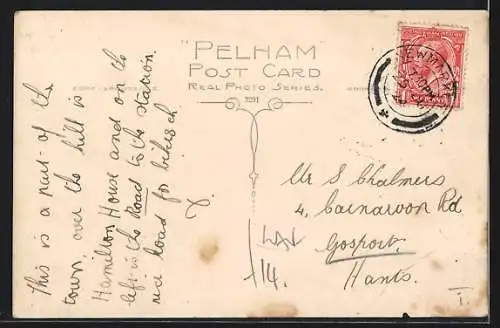 "PELHAM"
POST CARD
REAL PHOTO SERIES.
3291
This is a part of the
town, over the hill is
Hamilton House and on the
left is the Road to the station.
nice Road for bikes eh
?
Mr S Chalmers
4, Carnarvon Rd
Gosport.
Hants.
14.